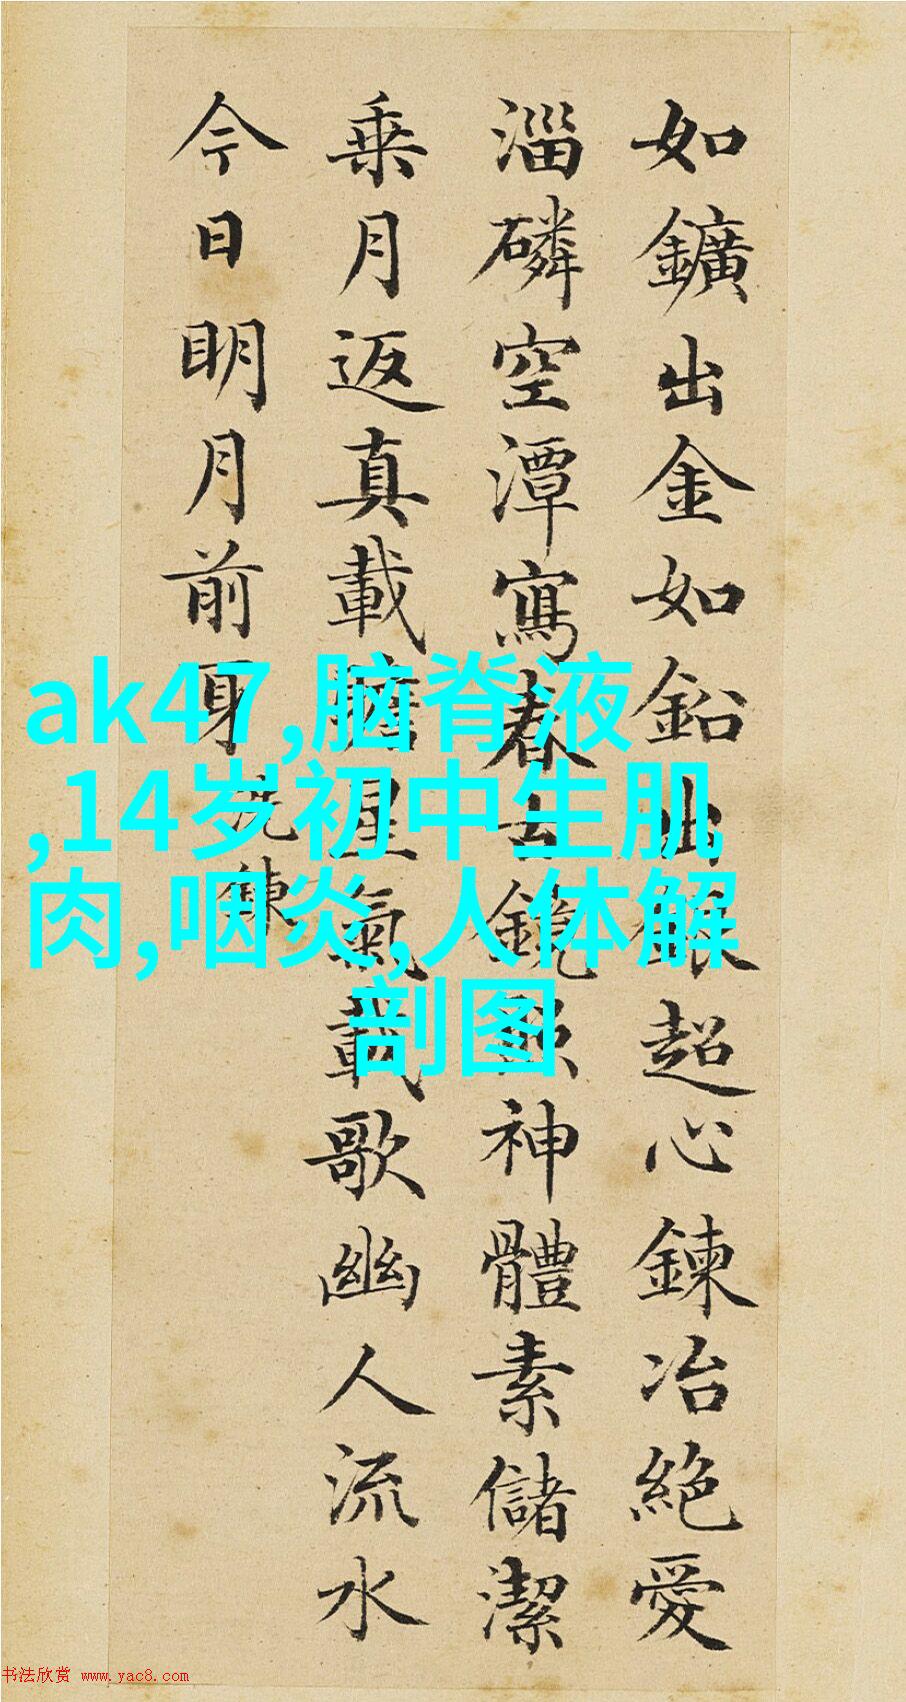 如鑛出金如鉛出銀超心鍊冶絕愛
淄磷空潭寫春古鏡照神體素儲潔
乘月返真載瞻星氣載歌幽人流水
今日明月前身
洗鍊
ak47,脑脊液
,14岁初中生肌
肉,咽炎,人体解
剖图
书法欣赏 www.yac8.com